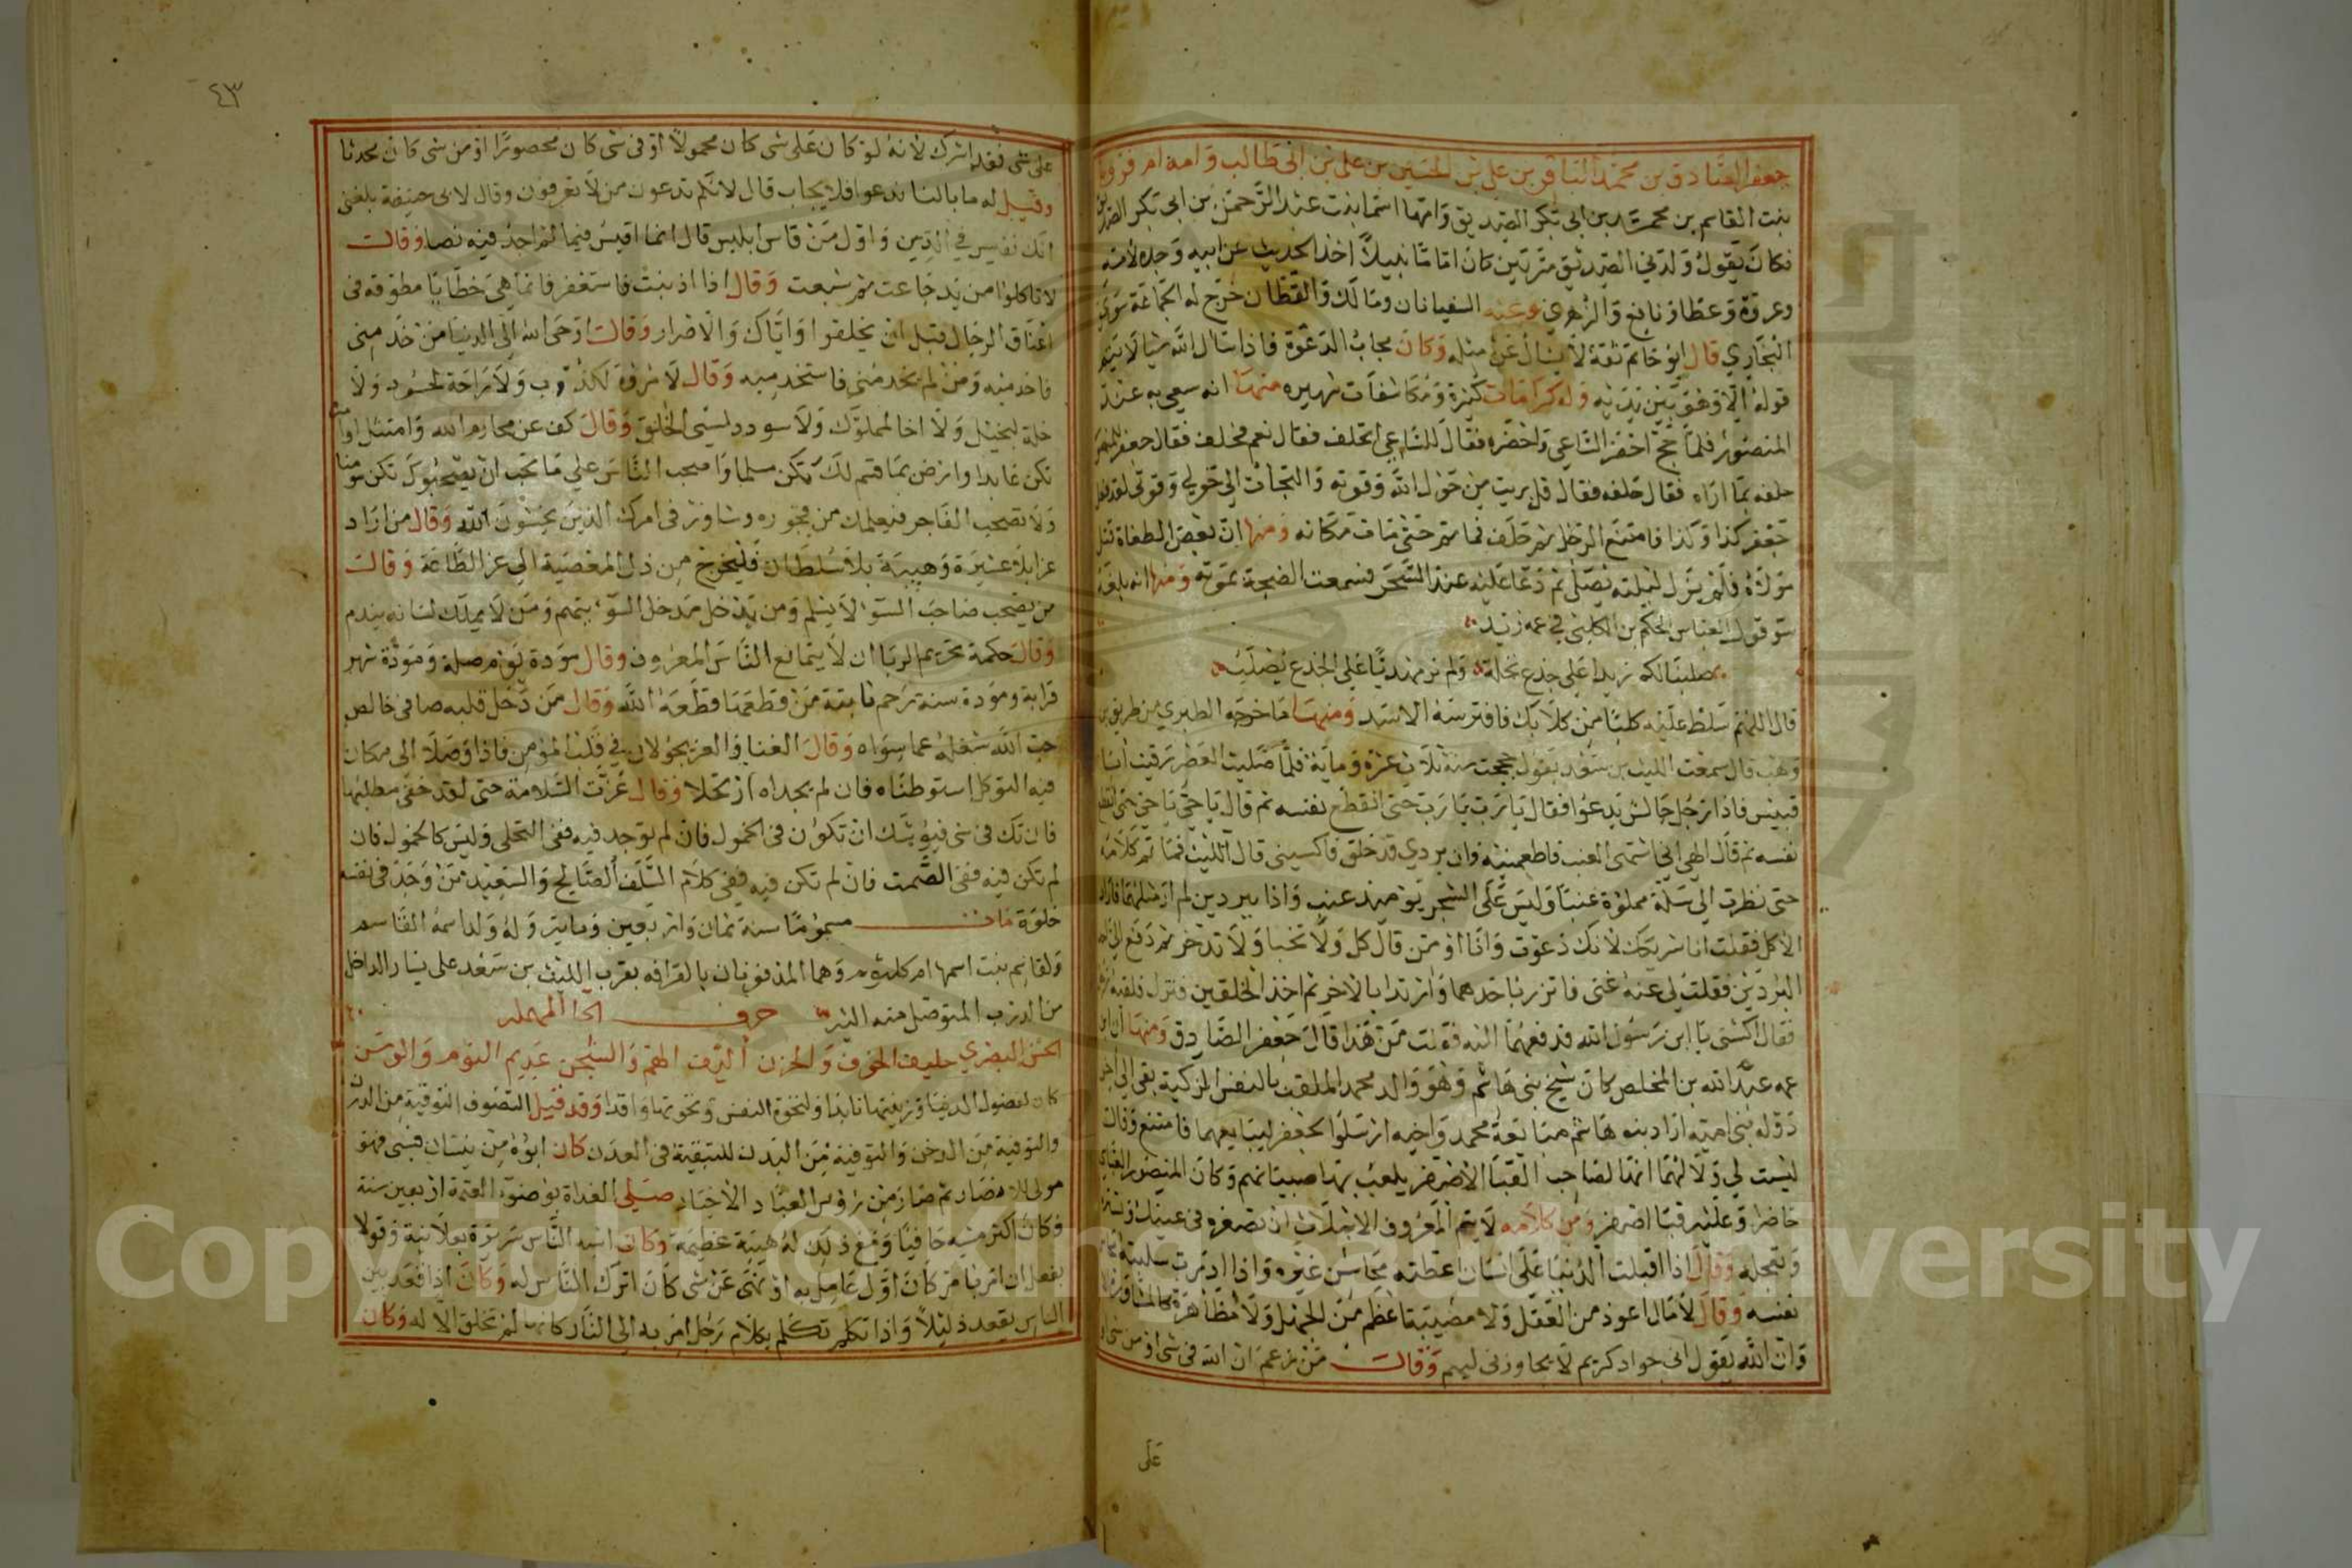 جعفر الصادق بن محمد الباقر بن علي بن الحسين بن علي بن ابي طالب وامه ام فروة
بنت القاسم بن محمد بن ابي بكر الصديق وامها اسما بنت عبد الرحمن بن ابي بكر الصديق
فكان يقول ولدني الصديق مرتين كان اماما نبيلا اخذ الحديث عن ابيه وجده لامه
وعروة وعطا ونافع والزهري وعنه السفيانان ومالك والقطان خرج له الجماعة سوى
البخاري قال ابو حاتم ثقة لا يسال عن مثله وكان مجاب الدعوة فاذا سال الله شيا لا يتم
قوله الا وهو بين يديه وله كرامات كثيرة ومكاشفات شهيره منها انه سعي به عند
المنصور فلما حج احضر الساعي واحضره فقال للساعي اتحلف فقال نعم فحلف فقال جعفر للمنصور
حلفه بما اراه فقال حلفه فقال قل بريت من حول الله وقوته والتجات الى حولي وقوتي لقد فعل
جعفر كذا وكذا فامتنع الرجل ثم حلف فما تم حتى مات مكانه ومنها ان بعض الطغاة قتل
مولاه فلم يزل ليلته يصلي ثم دعا عليه عند السحر فسمعت الضجة بموته ومنها انه بلغه
قول العباس الحكم بن الكلبي في عمه زيد
صلبنا لكم زيدا على جذع نخلة ولم نر مهديا على الجذع يصلب
قال اللهم سلط عليه كلبا من كلابك فافترسه الاسد ومنها ما اخرجه الطبري من طريق بن
وهب قال سمعت الليث بن سعد يقول حججت سنة ثلاث عشرة وماية فلما صليت العصر رقيت ابا
قبيس فاذا رجل جالس يدعوا فقال يا رب يا رب حتى انقطع نفسه ثم قال يا حي يا حي حتى انقطع
نفسه ثم قال الهي اني اشتهى العنب فاطعمنيه وان بردي قد خلق فاكسيني قال الليث فما تم كلامه
حتى نظرت الى سلة مملوة عنبا وليس على الشجر يومئذ عنب واذا ببردين لم ار مثلهما فاراد
الاكل فقلت انا شريكك لانك دعوت وانا اومن قال كل ولا تخبا ولا تدخر ثم دفع الي احد
البردين فقلت لي عنه غنى فاتزر باحدهما وارتدا بالاخر ثم اخذ الخلقين فنزل فلقيه رجل
فقال اكسني يا ابن رسول الله فدفعهما اليه فقلت من هذا قال جعفر الصادق ومنها ان ابن
عمه عبد الله بن المخلص كان شيخ بني هاشم وهو والد محمد الملقب بالنفس الزكية بقي الى اخر
دولة بني امية اراد بنو هاشم مبايعة محمد واخيه ارسلوا لجعفر ليبايعهما فامتنع وقال
ليست لي ولا لهما انها لصاحب القبا الاصفر يلعب بها صبيانهم وكان المنصور العباسي
حاضرا وعليه قبا اصفر ومن كلامه لا يتم المعروف الا بثلاث ان تصغره في عينك وتستره
وتعجله وقال اذا اقبلت الدنيا على انسان اعطته محاسن غيره واذا ادبرت سلبته محاسن
نفسه وقال لا مال اعود من العقل ولا مصيبة اعظم من الجهل ولا مظاهرة كالمشاورة الا
وان الله يقول اني جواد كريم لا يجاورني لييم وقال من زعم ان الله في شي او من شي او
على
٤٣
على شي فقد اشرك لانه لو كان على شي كان محمولا او في شي كان محصورا او من شي كان محدثا
وقيل له ما بالنا ندعو فلا يجاب قال لانكم تدعون من لا تعرفون وقال لابي حنيفة بلغني
انك تقيس في الدين واول من قاس ابليس قال انما اقيس فيما لم اجد فيه نصا وقال
لا تاكلوا من يد جاعت ثم شبعت وقال اذا اذنبت فاستغفر فانما هي خطايا مطوقة في
اعناق الرجال قبل ان يخلقوا واياك والاصرار وقال اوحى الله الى الدنيا من خدمني
فاخدميه ومن لم يخدمني فاستخدميه وقال لا مروة لكذوب ولا راحة لحسود ولا
خلة لبخيل ولا اخا لمملوك ولا سودد لسيئ الخلق وقال كف عن محارم الله وامتثل اوامره
تكن عابدا وارض بما قسم لك تكن مسلما واصحب الناس على ما تحب ان يصحبوك تكن مومنا
ولا تصحب الفاجر فيعلمك من فجوره وشاور في امرك الذين يخشون الله وقال من اراد
عزا بلا عشيرة وهيبة بلا سلطان فليخرج من ذل المعصية الى عز الطاعة وقال
من يصحب صاحب السوء لا يسلم ومن يدخل مدخل السوء يتهم ومن لا يملك لسانه يندم
وقال حكمة تحريم الربا ان لا يتمانع الناس المعروف وقال مودة يوم صلة ومودة شهر
قرابة ومودة سنة رحم ثابتة من قطعها قطعه الله وقال من دخل قلبه صافي خالص
حب الله شغله عما سواه وقال الغنا والعز يجولان في قلب المومن فاذا وصلا الى مكان
فيه التوكل استوطناه فان لم يجداه ارتحلا وقال عزت السلامة حتى لقد خفي مطلبها
فان تك في شي فيوشك ان تكون في الخمول فان لم توجد فيه ففي التخلي وليس كالخمول فان
لم تكن فيه ففي الصمت فان لم تكن فيه ففي كلام السلف الصالح والسعيد من وجد في نفسه
خلوة مات مسموما سنة ثمان واربعين وماية وله ولد اسمه القاسم
وللقاسم بنت اسمها ام كلثوم وهما المدفونان بالقرافه بقرب الليث بن سعد على يسار الداخل
من الدرب المتوصل منه اليه حرف الحا المهمله
الحسن البصري حليف الخوف والحزن اليف الهم والشجن عديم النوم والوسن
كان لفضول الدنيا وزينتها نابذا ولنخوة النفس ونخوتها واقدا وقد قيل التصوف التوقية من الدرن
والتوفية من الدخن والتوقية من البدن للتبقية في العدن كان ابوه من بيسان فسبى فهو
مولى للانصار ثم صار من رؤس العباد الاخيار صلى الغداة بوضوء العتمة اربعين سنة
وكان اكثر مشيه حافيا ومع ذلك له هيبة عظيمة وكان اشبه الناس سريرة بعلانية وقولا
بفعل ان امر بامر كان اول عامل به او نهى عن شي كان اترك الناس له وكان اذا قعد بين
الناس يقعد ذليلا واذا تكلم تكلم بكلام رجل امر به الى النار كانها لم تخلق الا له وكان
Copyright © King Saud University